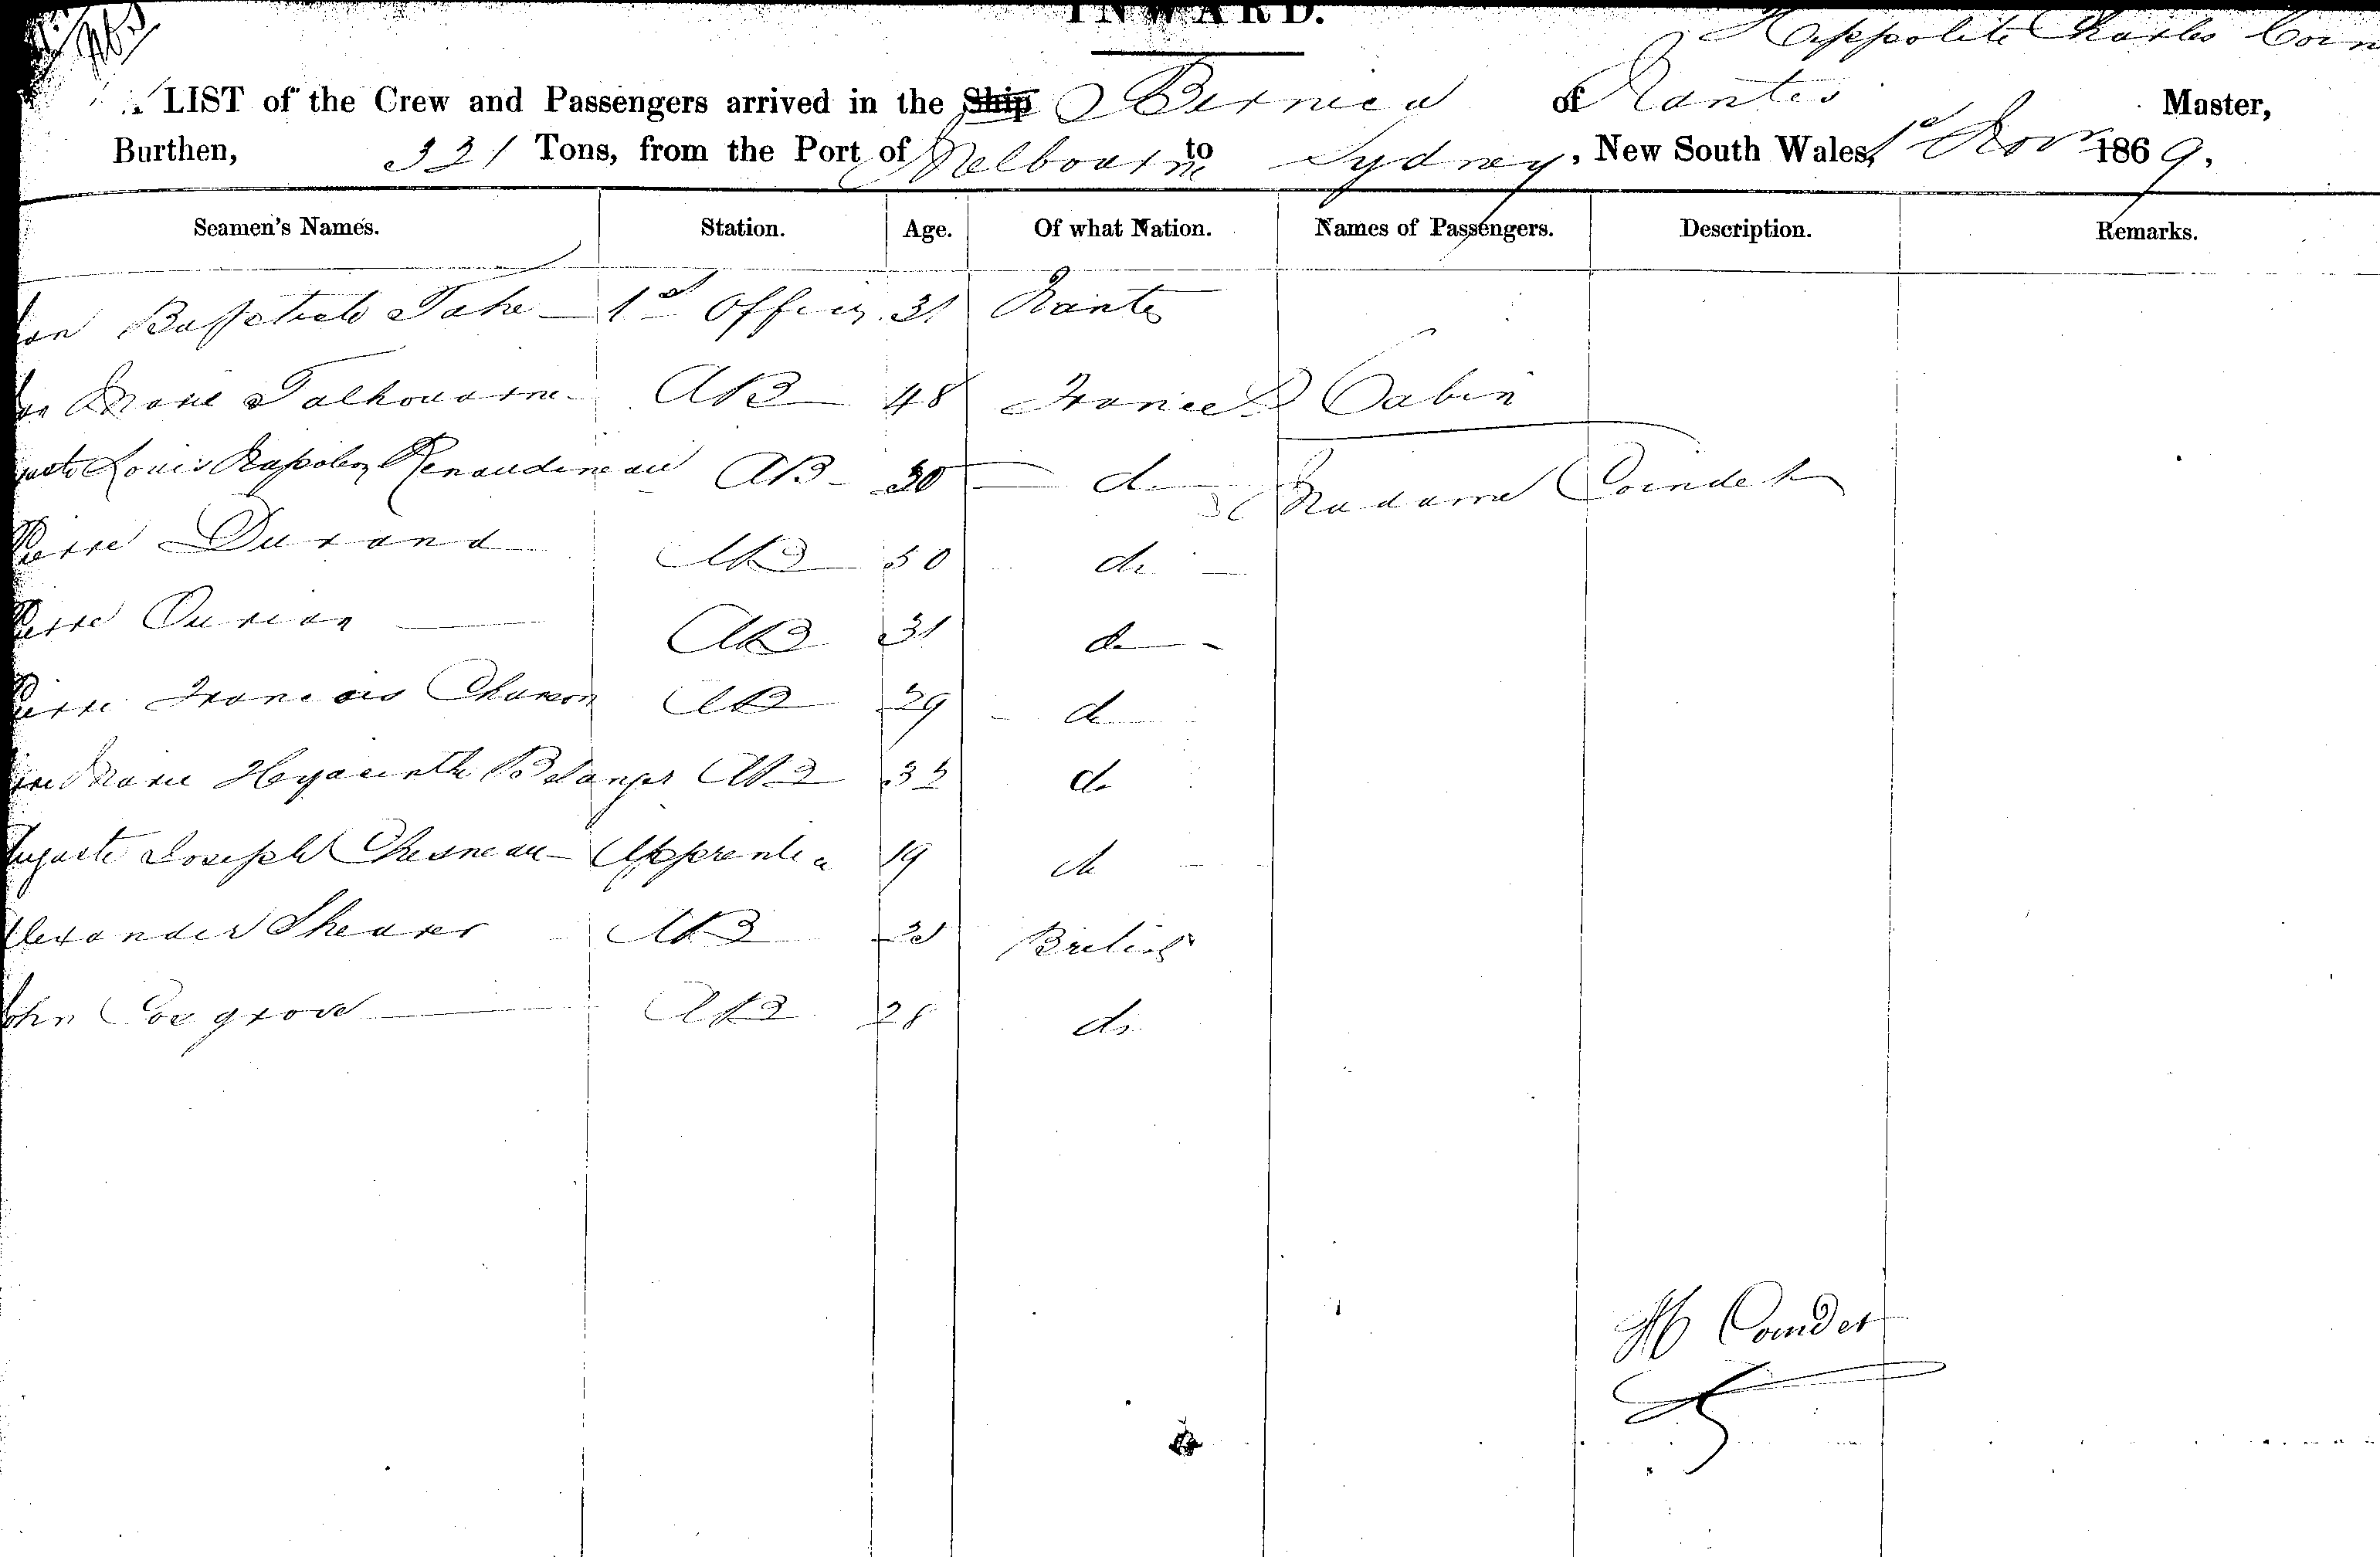 INWARD.
Hippolite Charles Coin
LIST of the Crew and Passengers arrived in the Ship Bernica of Nantes Master,
Burthen, 321 Tons, from the Port of Melbourne to Sydney, New South Wales, 1st Novr 1869.
Seamen's Names. Station. Age. Of what Nation. Names of Passengers. Description. Remarks.
1st Officer 31 Nantes
Marie Talhouarne AB 48 France Cabin
Louis Napoleon Renaudineau AB 30 do Madame Coindet
Pierre Durand AB 50 do
Pierre Durian AB 31 do
Pierre Francois AB 29 do
Marie Hyacinthe Belanger AB do
Auguste Joseph Chesneau Apprentice 19 do
Alexander Shearer AB British
John Cosgrove AB 28 do
H Coindet